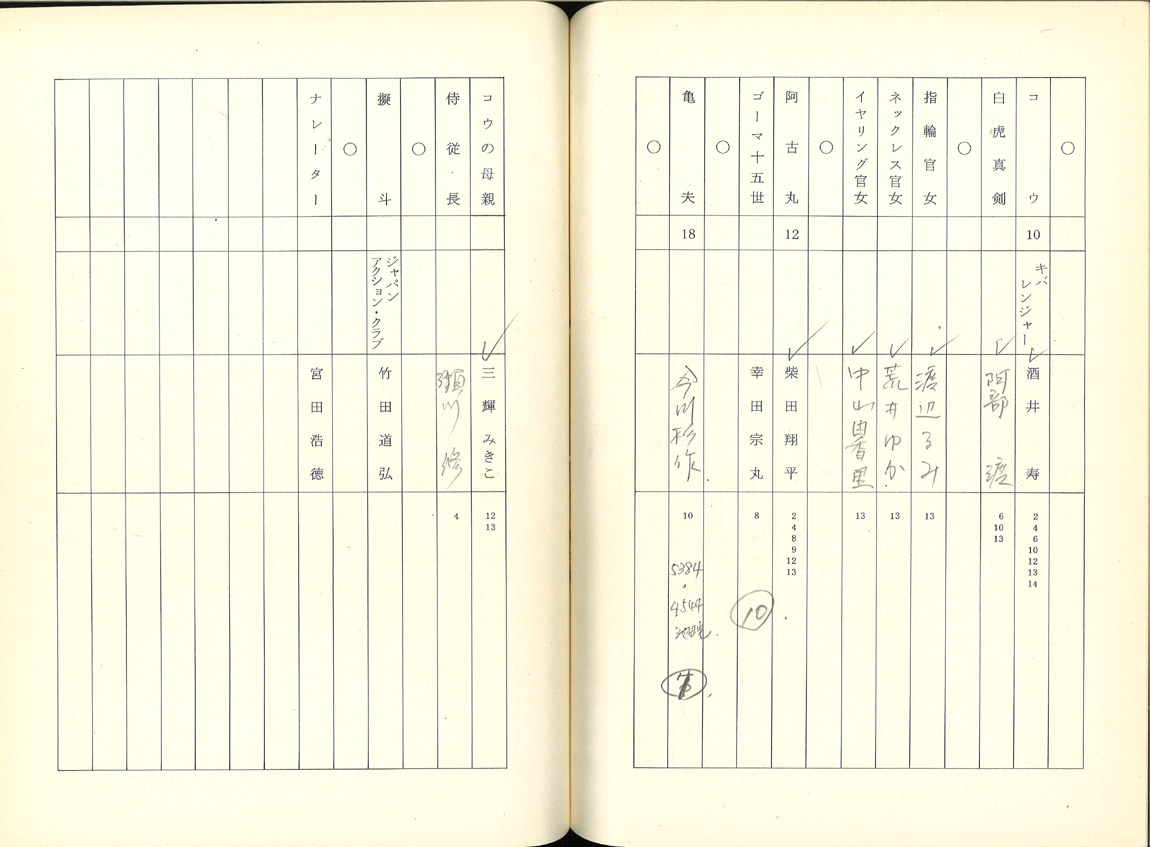 ○
コウ
10
キバ
レンジャー
酒井 寿
2
4
6
10
12
13
14
白虎真剣
阿部 渡
6
10
13
○
指輪官女
渡辺るみ
13
ネックレス官女
荒井ゆか
13
イヤリング官女
中山由香里
13
○
阿古丸
12
柴田翔平
2
4
8
9
12
13
ゴーマ十五世
幸田宗丸
8
10
○
亀夫
18
今川杉作
10
5384
4544
○
コウの母親
三輝みきこ
12
13
侍従長
瀬川 修
4
○
擬斗
ジャパン
アクション・クラブ
竹田道弘
○
ナレーター
宮田浩徳